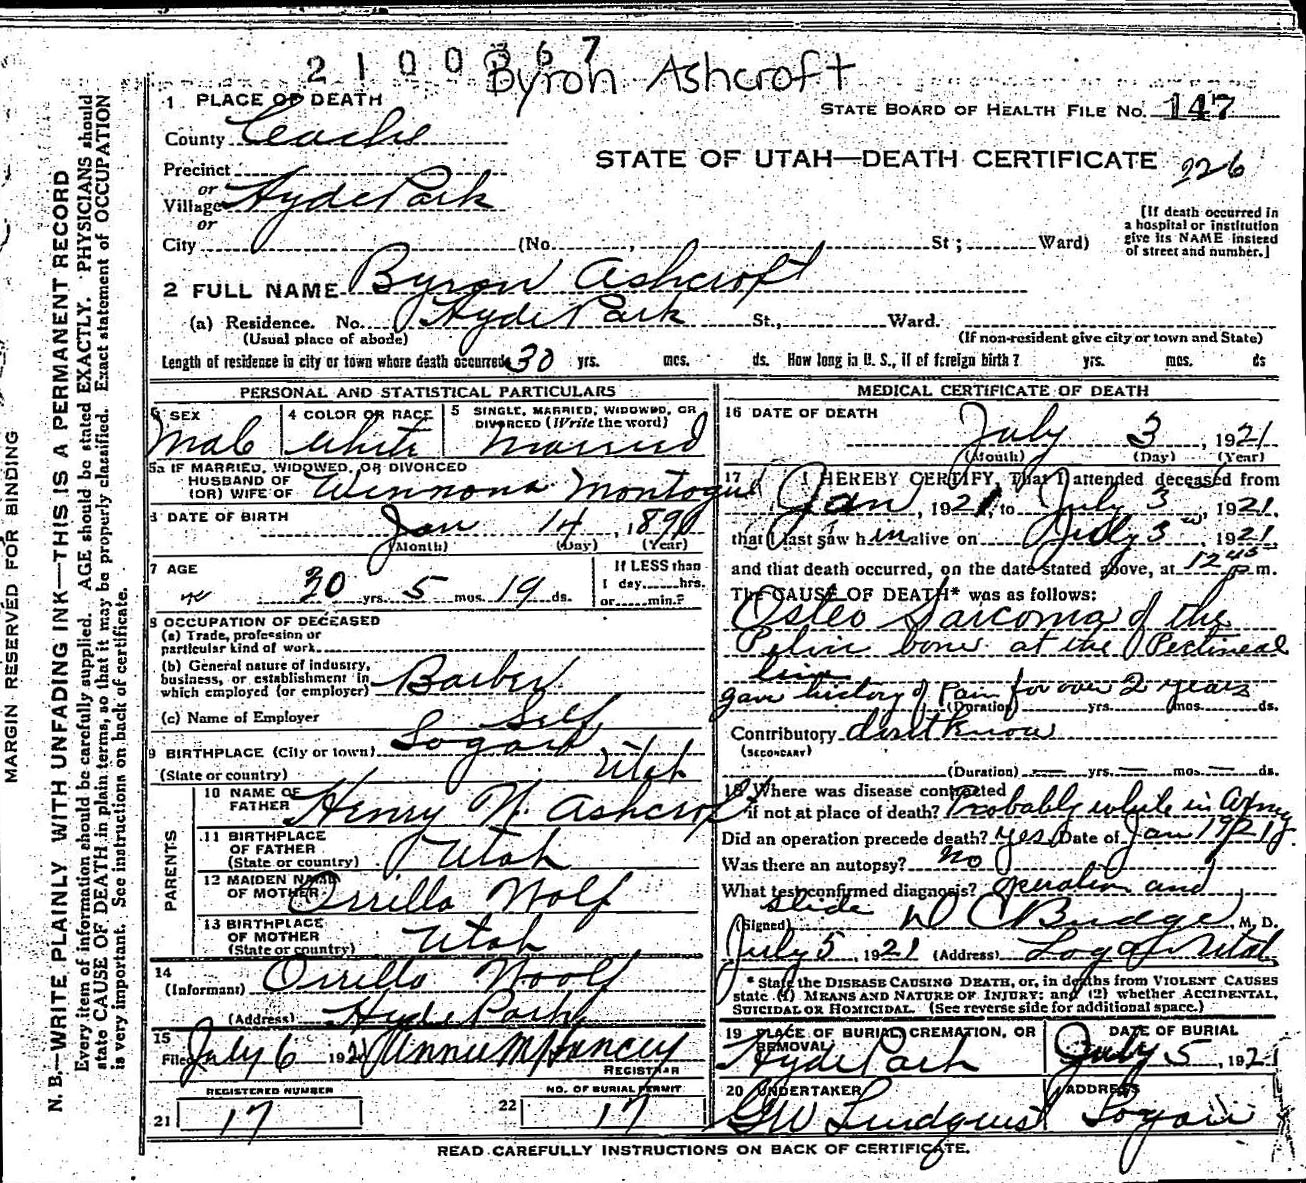 2100367
Byron Ashcroft
1 PLACE OF DEATH
STATE BOARD OF HEALTH FILE No. 147
County Cache
STATE OF UTAH—DEATH CERTIFICATE 226
Precinct
or
Village Hyde Park
or
City (No , St ; Ward)
[If death occurred in
a hospital or institution
give its NAME instead
of street and number.]
2 FULL NAME Byron Ashcroft
(a) Residence. No. Hyde Park St., Ward.
(Usual place of abode) (If non-resident give city or town and State)
Length of residence in city or town where death occurred 30 yrs. mos. ds. How long in U. S., if of foreign birth? yrs. mos. ds
PERSONAL AND STATISTICAL PARTICULARS
3 SEX Male
4 COLOR OR RACE White
5 SINGLE, MARRIED, WIDOWED, OR
DIVORCED (Write the word)
Married
5a IF MARRIED, WIDOWED, OR DIVORCED
HUSBAND OF
(OR) WIFE OF Winnona Montogue
6 DATE OF BIRTH
Jan 14, 1891
(Month) (Day) (Year)
7 AGE
30 yrs. 5 mos. 19 ds.
If LESS than
1 day hrs.
or min.?
8 OCCUPATION OF DECEASED
(a) Trade, profession or
particular kind of work
(b) General nature of industry,
business, or establishment in
which employed (or employer) Barber
(c) Name of Employer Self
9 BIRTHPLACE (City or town) Logan
(State or country) Utah
PARENTS
10 NAME OF
FATHER Henry N. Ashcroft
11 BIRTHPLACE
OF FATHER
(State or country) Utah
12 MAIDEN NAME
OF MOTHER Orrilla Wolf
13 BIRTHPLACE
OF MOTHER
(State or country) Utah
14
(Informant) Orrilla Woolf
(Address) Hyde Park
15
Filed July 6 1921
REGISTRAR
REGISTERED NUMBER
21 17
NO. OF BURIAL PERMIT
22 17
MEDICAL CERTIFICATE OF DEATH
16 DATE OF DEATH
July 3, 1921
(Month) (Day) (Year)
17 I HEREBY CERTIFY, That I attended deceased from
Jan, 1921, to July 3, 1921,
that I last saw him alive on July 3, 1921,
and that death occurred, on the date stated above, at 12 45 p.m.
The CAUSE OF DEATH* was as follows:
Osteo Sarcoma of the
bone at the Pectineal
line
gave history of Pain for over 2 years
(Duration) yrs. mos. ds.
Contributory don't know
(SECONDARY)
(Duration) — yrs. — mos. — ds.
18 Where was disease contracted
if not at place of death? Probably while in Army
Did an operation precede death? yes Date of Jan
Was there an autopsy? no
What test confirmed diagnosis? operation and
slide
(Signed) D C Budge, M. D.
July 5, 1921 (Address) Logan Utah
* State the DISEASE CAUSING DEATH, or, in deaths from VIOLENT CAUSES
state (1) MEANS AND NATURE OF INJURY; and (2) whether ACCIDENTAL,
SUICIDAL OR HOMICIDAL. (See reverse side for additional space.)
19 PLACE OF BURIAL, CREMATION, OR
REMOVAL
Hyde Park
DATE OF BURIAL
July 5, 1921
20 UNDERTAKER
GW Lindquist
ADDRESS
Logan
READ CAREFULLY INSTRUCTIONS ON BACK OF CERTIFICATE.
MARGIN RESERVED FOR BINDING
N. B.—WRITE PLAINLY WITH UNFADING INK—THIS IS A PERMANENT RECORD
Every item of information should be carefully supplied. AGE should be stated EXACTLY. PHYSICIANS should
state CAUSE OF DEATH in plain terms, so that it may be properly classified. Exact statement of OCCUPATION
is very important. See instructions on back of certificate.